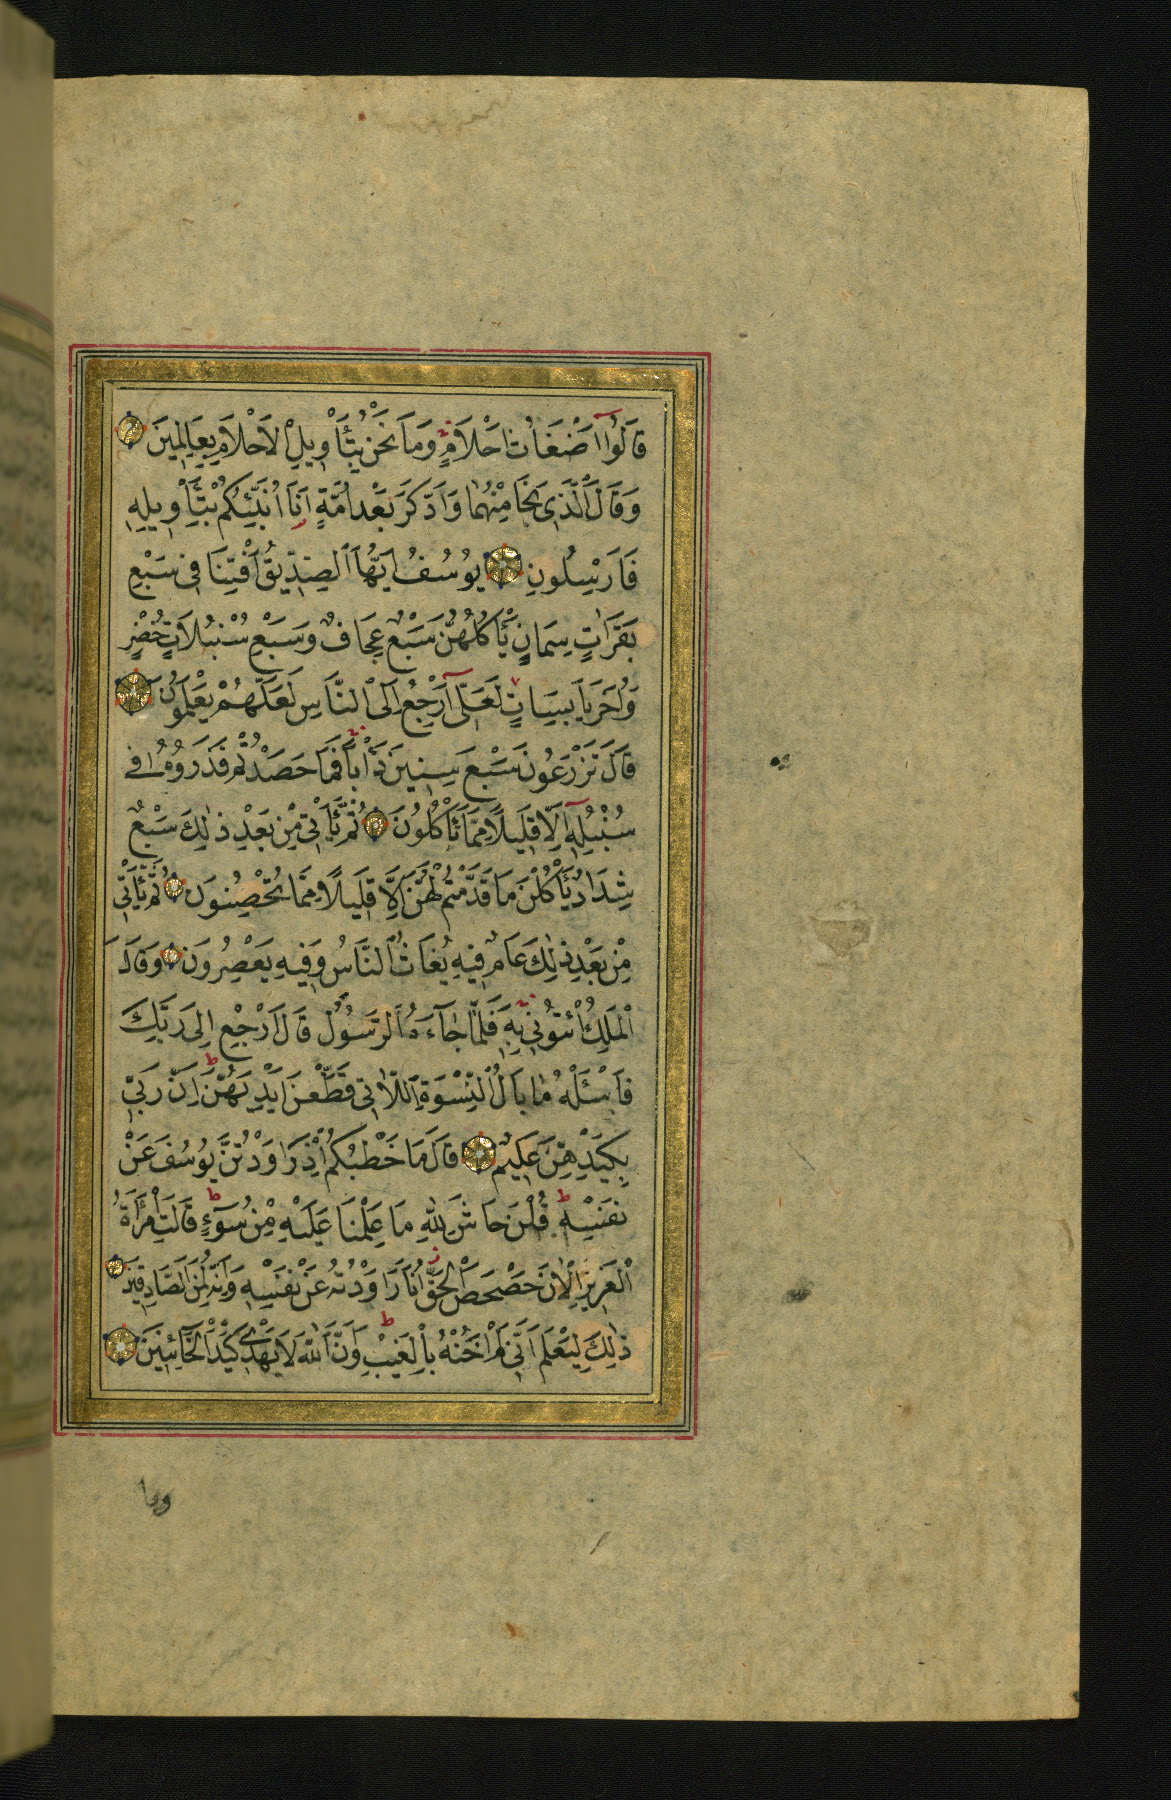 قَالُوا اَضْغَاثُ اَحْلَامٍ وَمَا نَحْنُ بِتَأْوِيلِ الْاَحْلَامِ بِعَالِمِينَ
وَقَالَ الَّذِى نَجَا مِنْهُمَا وَادَّكَرَ بَعْدَ اُمَّةٍ اَنَا اُنَبِّئُكُمْ بِتَأْوِيلِهِ
فَاَرْسِلُونِ يُوسُفُ اَيُّهَا الصِّدِّيقُ اَفْتِنَا فِى سَبْعِ
بَقَرَاتٍ سِمَانٍ يَأْكُلُهُنَّ سَبْعٌ عِجَافٌ وَسَبْعِ سُنْبُلَاتٍ خُضْرٍ
وَاُخَرَ يَابِسَاتٍ لَعَلِّى اَرْجِعُ اِلَى النَّاسِ لَعَلَّهُمْ يَعْلَمُونَ
قَالَ تَزْرَعُونَ سَبْعَ سِنِينَ دَأَبًا فَمَا حَصَدْتُمْ فَذَرُوهُ فِى
سُنْبُلِهِ اِلَّا قَلِيلًا مِمَّا تَأْكُلُونَ ثُمَّ يَأْتِى مِنْ بَعْدِ ذٰلِكَ سَبْعٌ
شِدَادٌ يَأْكُلْنَ مَا قَدَّمْتُمْ لَهُنَّ اِلَّا قَلِيلًا مِمَّا تُحْصِنُونَ ثُمَّ يَأْتِى
مِنْ بَعْدِ ذٰلِكَ عَامٌ فِيهِ يُغَاثُ النَّاسُ وَفِيهِ يَعْصِرُونَ وَقَالَ
الْمَلِكُ ائْتُونِى بِهِ فَلَمَّا جَاءَهُ الرَّسُولُ قَالَ ارْجِعْ اِلَى رَبِّكَ
فَاسْئَلْهُ مَا بَالُ النِّسْوَةِ اللَّاتِى قَطَّعْنَ اَيْدِيَهُنَّ اِنَّ رَبِّى
بِكَيْدِهِنَّ عَلِيمٌ قَالَ مَا خَطْبُكُنَّ اِذْ رَاوَدْتُنَّ يُوسُفَ عَنْ
نَفْسِهِ قُلْنَ حَاشَ لِلّٰهِ مَا عَلِمْنَا عَلَيْهِ مِنْ سُوءٍ قَالَتِ امْرَأَةُ
الْعَزِيزِ الْاٰنَ حَصْحَصَ الْحَقُّ اَنَا رَاوَدْتُهُ عَنْ نَفْسِهِ وَاِنَّهُ لَمِنَ الصَّادِقِينَ
ذٰلِكَ لِيَعْلَمَ اَنِّى لَمْ اَخُنْهُ بِالْغَيْبِ وَاَنَّ اللّٰهَ لَا يَهْدِى كَيْدَ الْخَائِنِينَ
وما